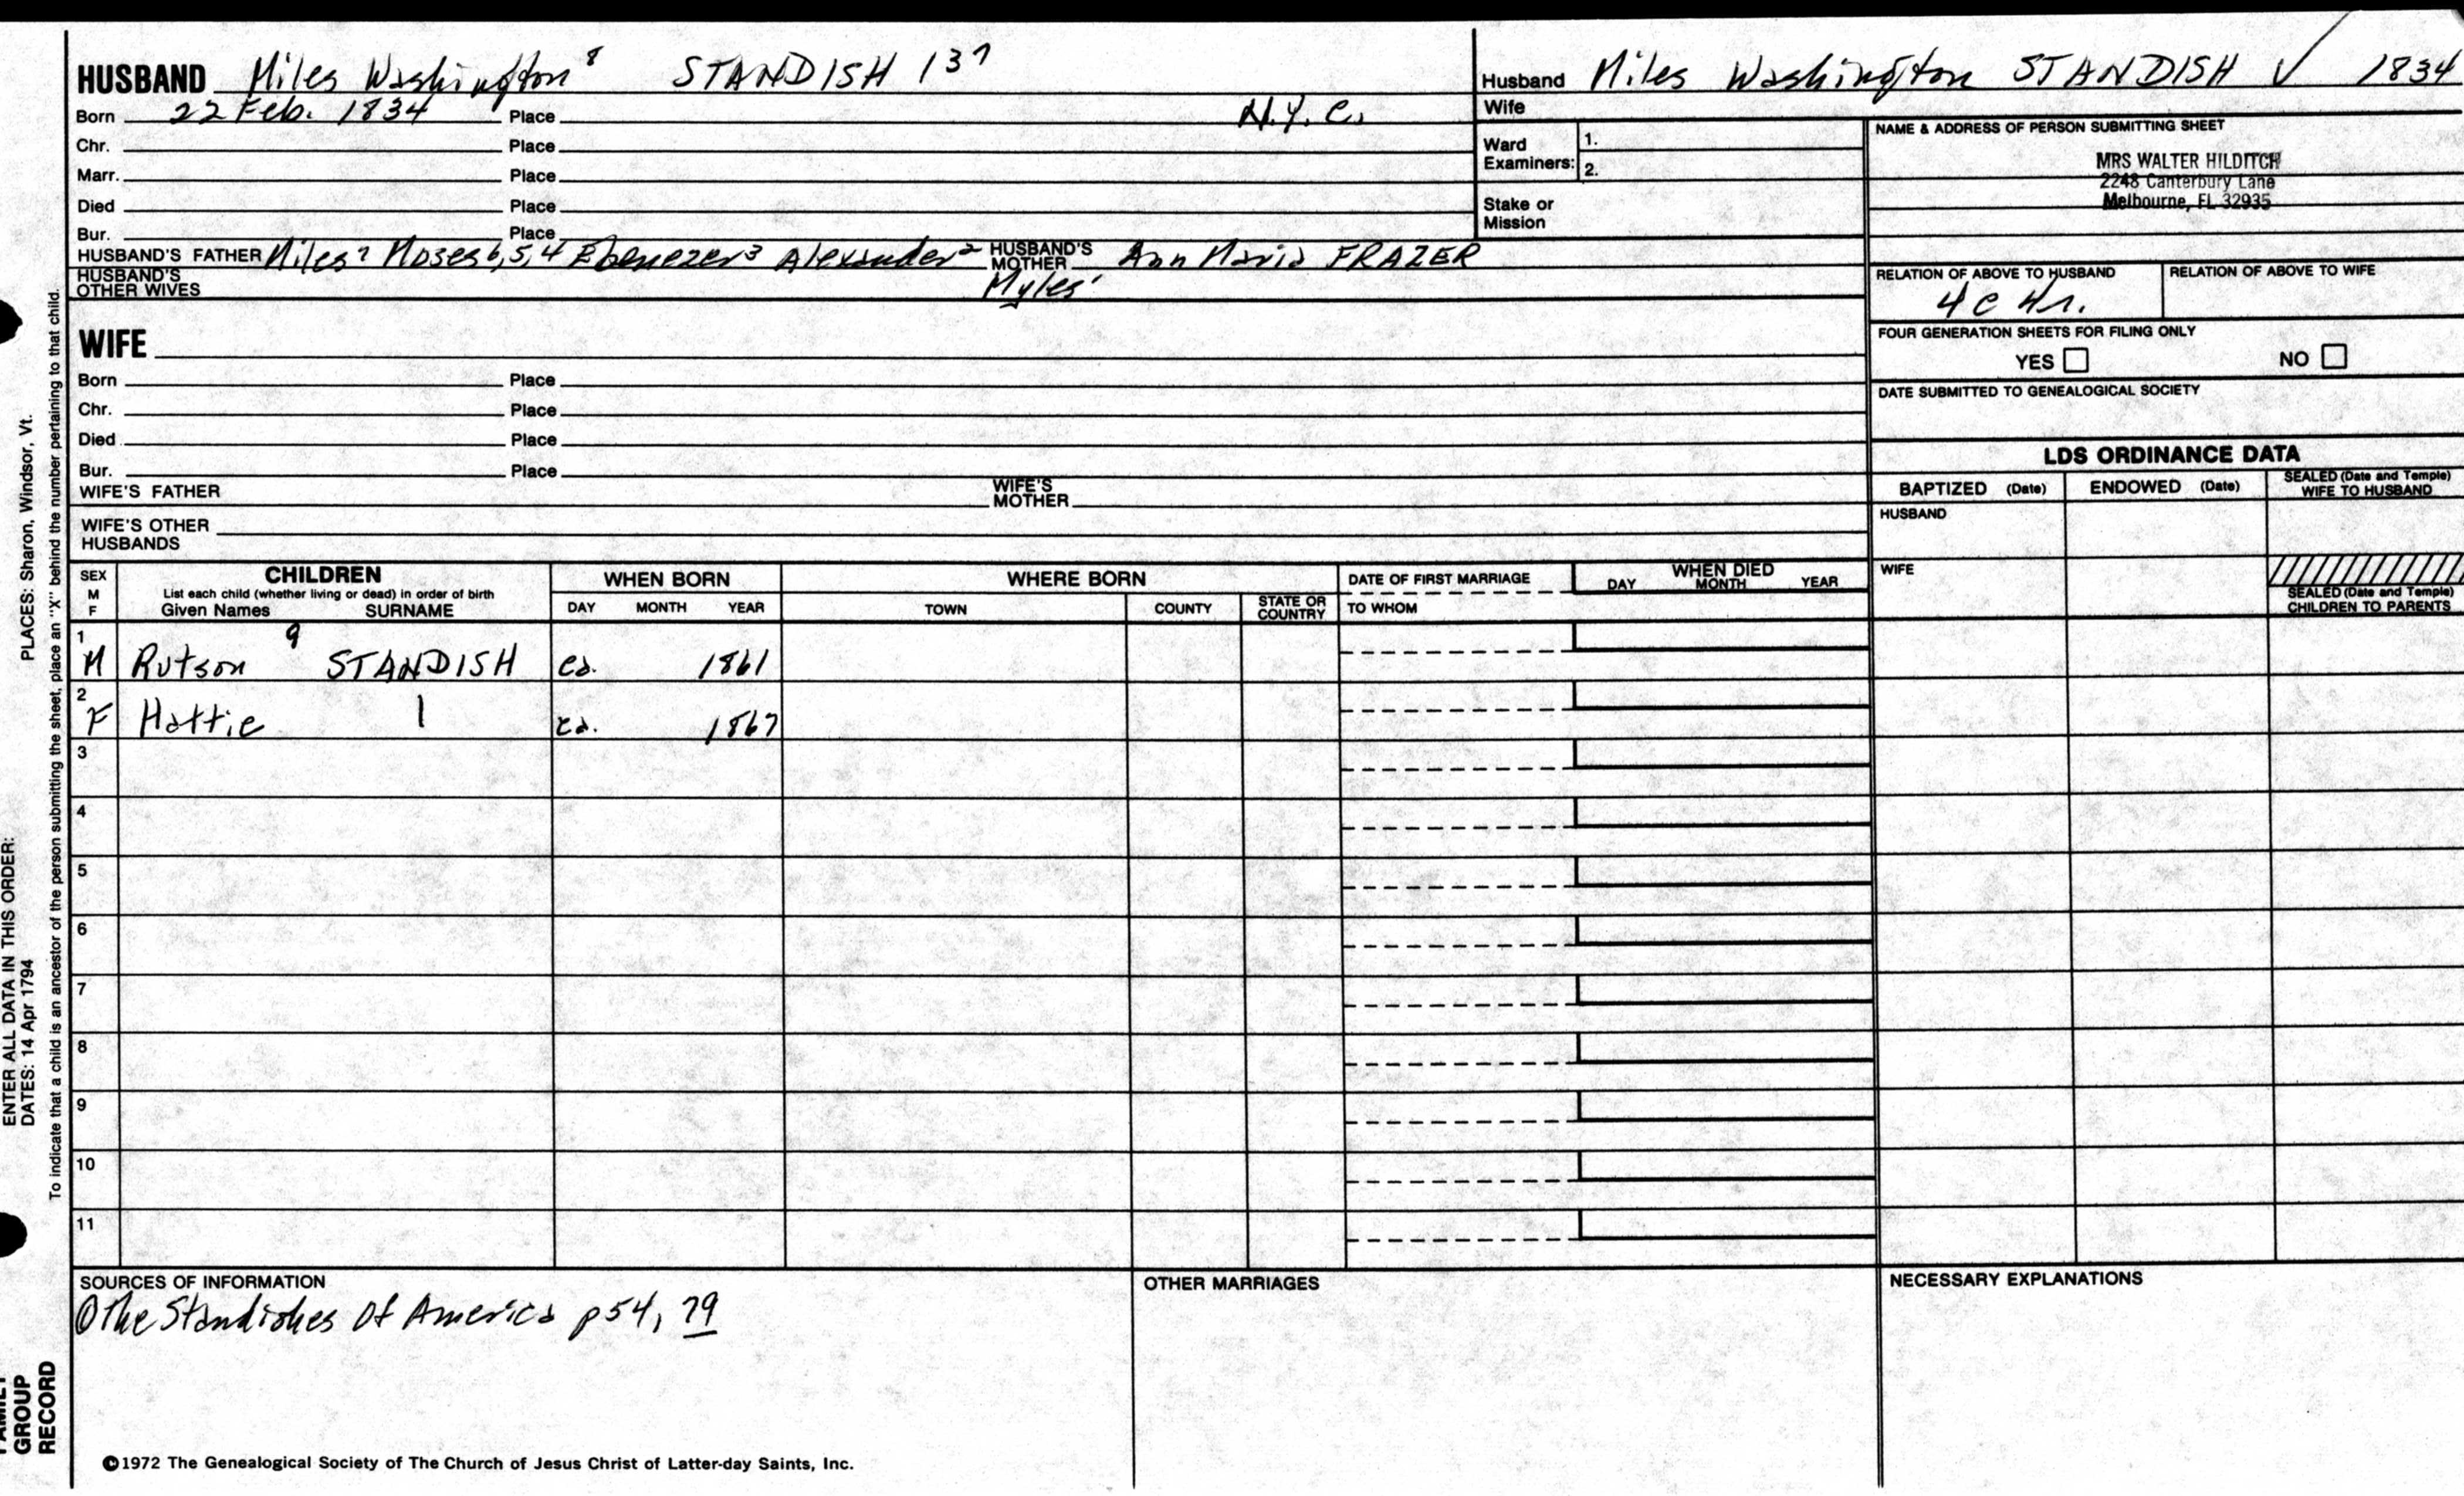 HUSBAND Miles Washington⁸ STANDISH 137
Born 22 Feb. 1834 Place N.Y.C.
Chr. Place
Marr. Place
Died Place
Bur. Place
HUSBAND'S FATHER Miles⁷ Moses 6,5,4 Ebenezer³ Alexander² HUSBAND'S MOTHER Ann Maria FRAZER
HUSBAND'S OTHER WIVES Myles¹
Husband Miles Washington STANDISH ✓ 1834
Wife
Ward Examiners: 1.
2.
Stake or Mission
NAME & ADDRESS OF PERSON SUBMITTING SHEET
MRS WALTER HILDITCH
2248 Canterbury Lane
Melbourne, FL 32935
RELATION OF ABOVE TO HUSBAND RELATION OF ABOVE TO WIFE
4c 4r.
FOUR GENERATION SHEETS FOR FILING ONLY
YES NO
DATE SUBMITTED TO GENEALOGICAL SOCIETY
WIFE
Born Place
Chr. Place
Died Place
Bur. Place
WIFE'S FATHER WIFE'S MOTHER
WIFE'S OTHER HUSBANDS
LDS ORDINANCE DATA
BAPTIZED (Date) ENDOWED (Date) SEALED (Date and Temple) WIFE TO HUSBAND
HUSBAND
WIFE
SEALED (Date and Temple) CHILDREN TO PARENTS
SEX M F CHILDREN List each child (whether living or dead) in order of birth Given Names SURNAME
WHEN BORN DAY MONTH YEAR
WHERE BORN TOWN COUNTY STATE OR COUNTRY
DATE OF FIRST MARRIAGE TO WHOM
WHEN DIED DAY MONTH YEAR
1 M Rutson⁹ STANDISH ca. 1861
2 F Hattie | ca. 1867
3
4
5
6
7
8
9
10
11
SOURCES OF INFORMATION
① The Standishes Of America p54, 79
OTHER MARRIAGES
NECESSARY EXPLANATIONS
©1972 The Genealogical Society of The Church of Jesus Christ of Latter-day Saints, Inc.
ENTER ALL DATA IN THIS ORDER:
DATES: 14 Apr 1794 PLACES: Sharon, Windsor, Vt.
To indicate that a child is an ancestor of the person submitting the sheet, place an "X" behind the number pertaining to that child.
FAMILY
GROUP
RECORD